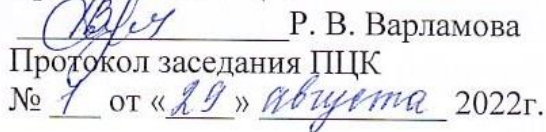 Р. В. Варламова
Протокол заседания ПЦК
№ 1 от «29» августа 2022г.